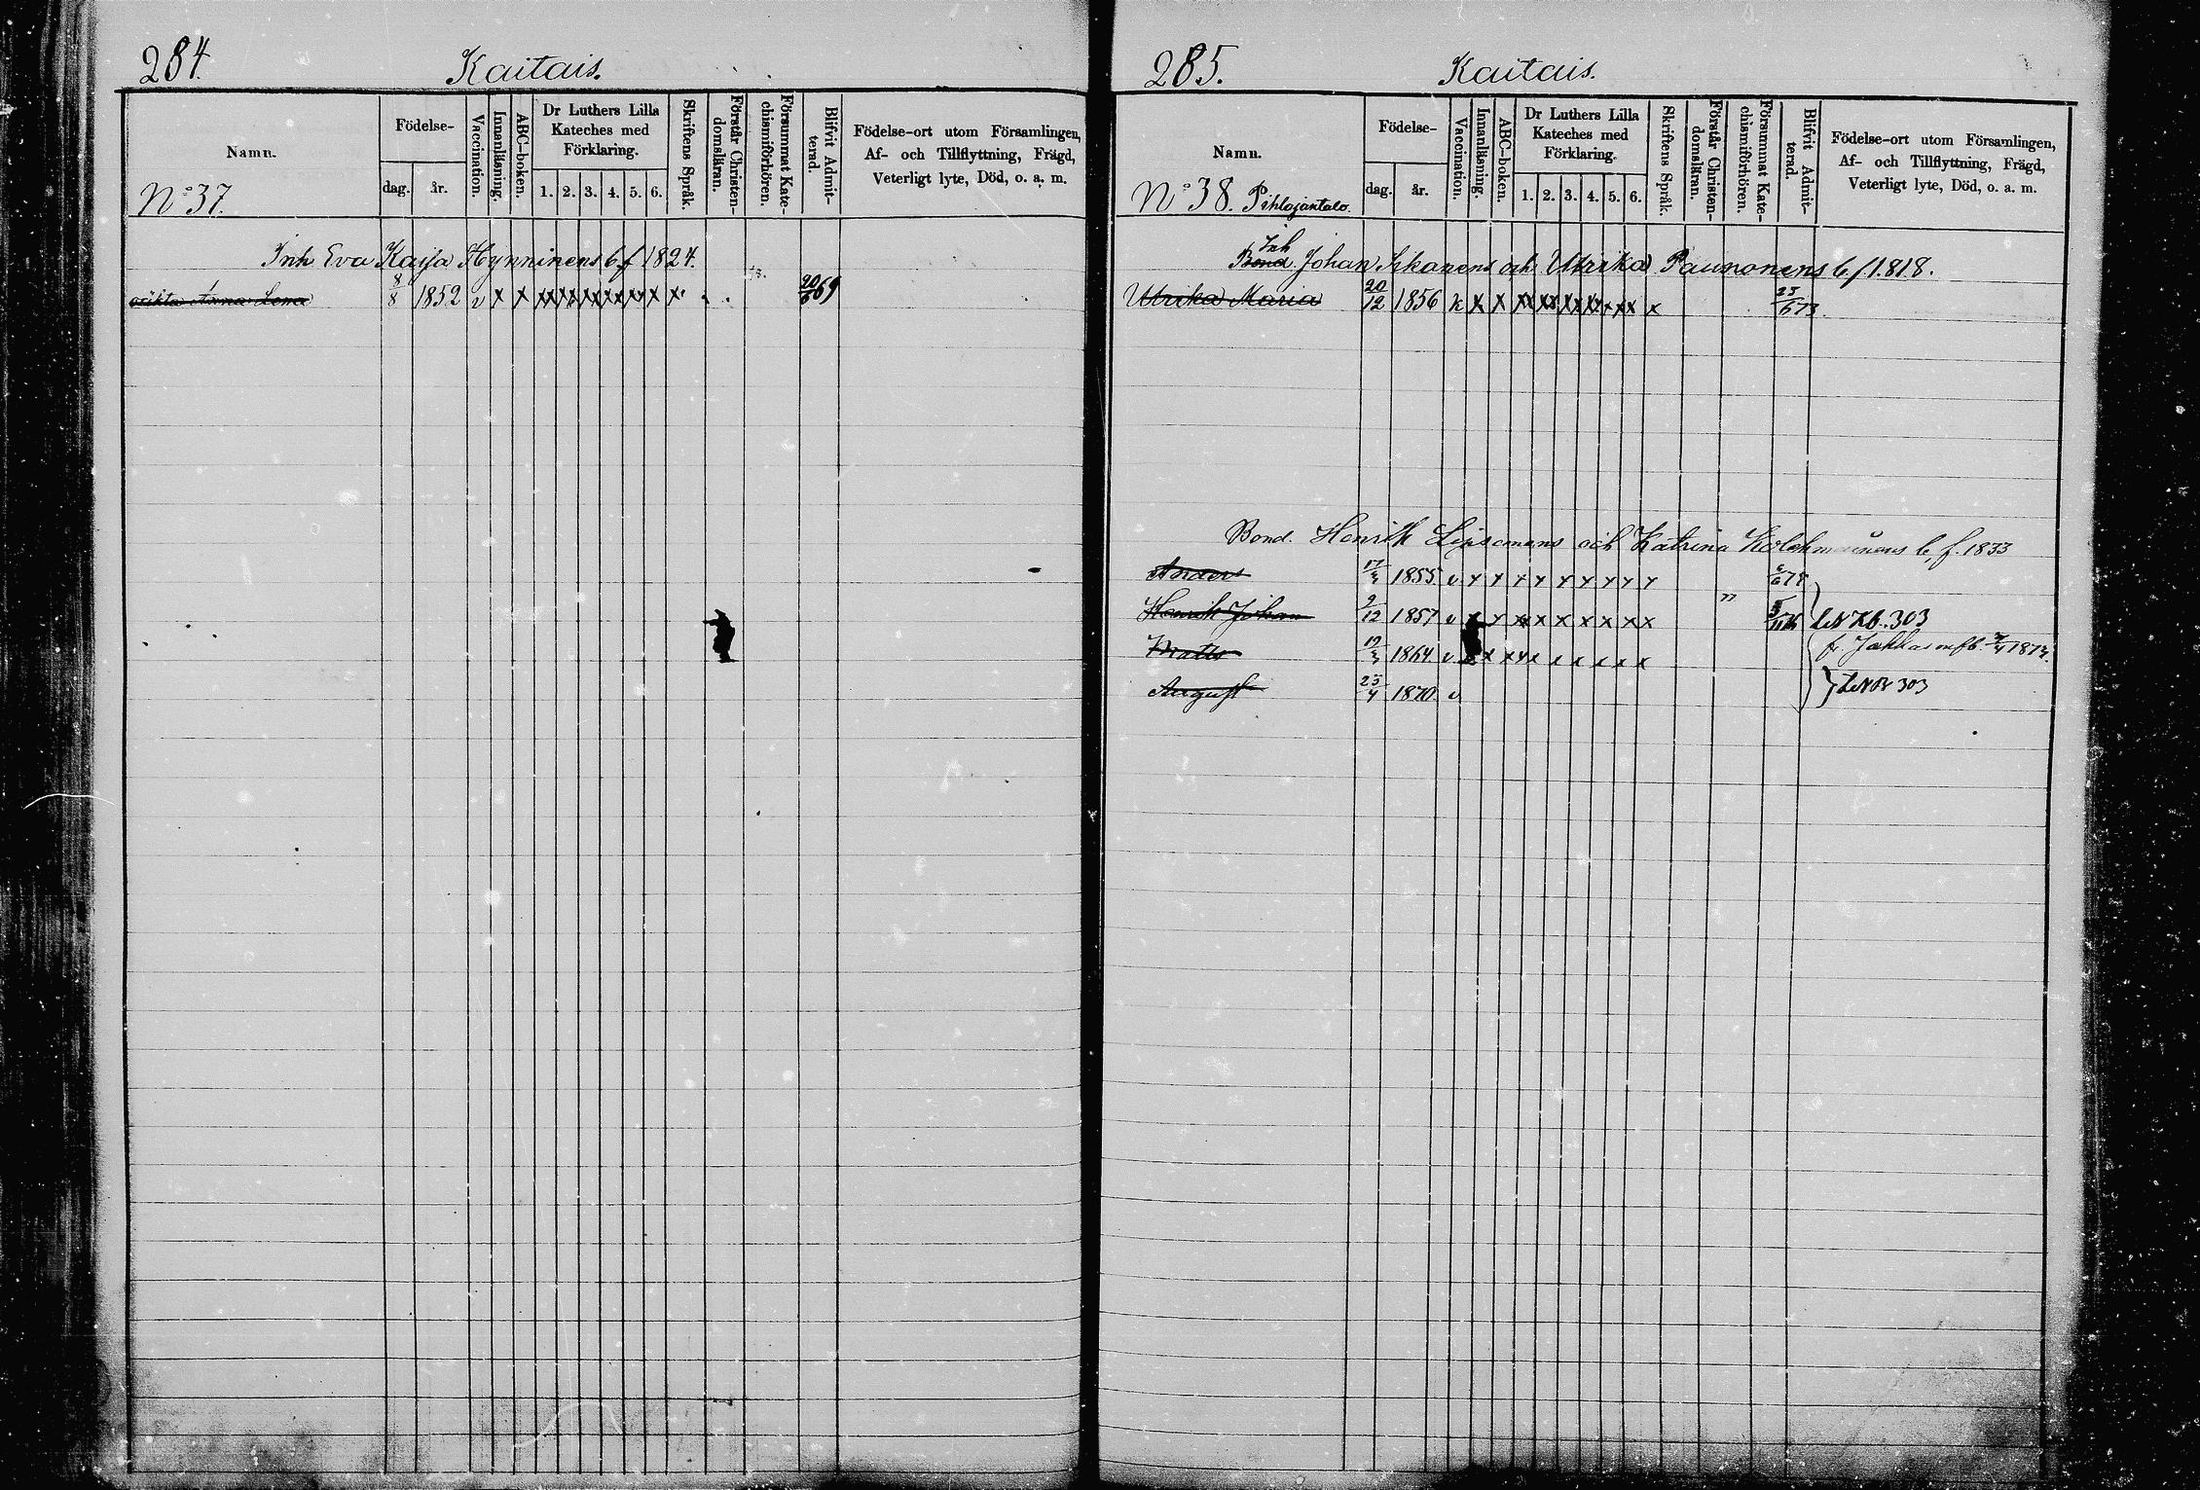 284.
Kaitais.
Namn.
Födelse-
dag.
år.
Vaccination.
Innanläsning.
ABC-boken.
Dr Luthers Lilla
Kateches med
Förklaring.
1. 2. 3. 4. 5. 6.
Skriftens Språk.
Förstår Christen-
domsläran.
Försummat Kate-
chismiförhören.
Blifvit Admit-
terad.
Födelse-ort utom Församlingen,
Af- och Tillflyttning, Frägd,
Veterligt lyte, Död, o. a. m.
No 37.
Inh Eva Kaisa Hynninens b f 1824.
oäkta Anna Lena 8/8 1852 v x x xx xx xx xx xx x x 20/6 69
285.
Kaitais.
Namn.
Födelse-
dag.
år.
Vaccination.
Innanläsning.
ABC-boken.
Dr Luthers Lilla
Kateches med
Förklaring.
1. 2. 3. 4. 5. 6.
Skriftens Språk.
Förstår Christen-
domsläran.
Försummat Kate-
chismiförhören.
Blifvit Admit-
terad.
Födelse-ort utom Församlingen,
Af- och Tillflyttning, Frägd,
Veterligt lyte, Död, o. a. m.
No 38. Pihlajantalo.
Inh
Bond Johan och Ulrika Paunonens b f. 1818.
Ulrika Maria 20/12 1856 k x x xx xx xx xx x xx x 23/6 73
Bond. Henrik och Katrina b. f. 1833
Anders 1855 v x x x x x x x x x
"
Henrik Johan 9/12 1857 v x x xx x x x x xx 303
Matts 1864 v x x xx x x x x x fr. 1873.
August 23/4 1870. v 303